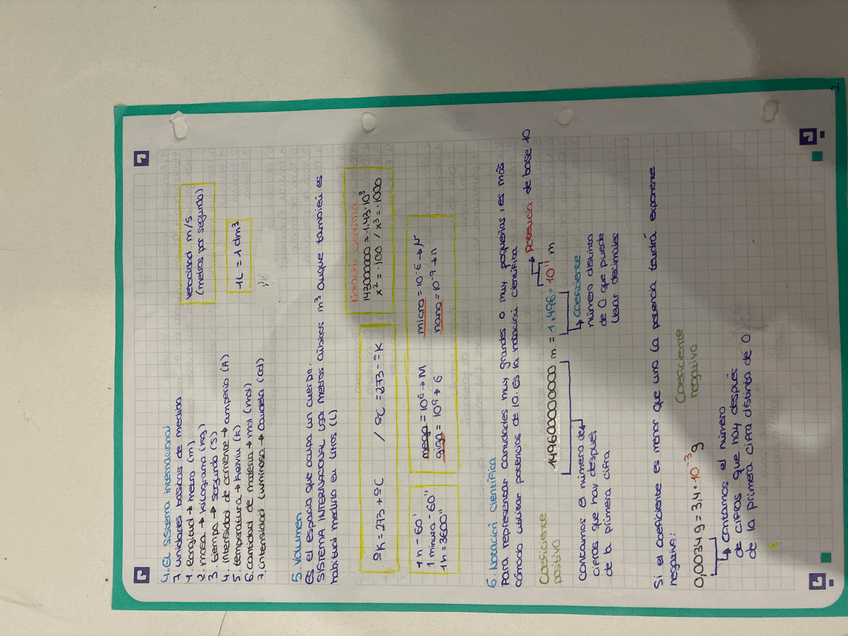 4. EL SISTEMA INTERNACIONAL
7 unidades básicas de medida
1. Longitud → metro (m)
2. masa → Kilogramo (Kg)
3. tiempo → segundo (s)
4. intensidad de corriente → amperio (A)
5. temperatura → Kelvin (K)
6. cantidad de materia → mol (mol)
7. intensidad luminosa → candela (cd)
Velocidad m/s
(metros por segundo)
1L = 1 dm³
5. Volumen
es el espacio que ocupa un cuerpo.
SISTEMA INTERNACIONAL usa metros cúbicos m³ auque también es
habitual medirlo en litros (L)
ºK = 273 + ºC / ºC = 273 - ºK
Notación científica
143000000 = 1,43·10
x² = ·100 / x³ = ·1000
1 h = 60'
1 minuto = 60''
1h = 3600''
mega = 10⁶ → M
giga = 10⁹ → G
micro = 10⁻⁶ →
nano = 10⁻⁹ → n
6. Notación científica
Para representar cantidades muy grandes o muy pequeñas, es más
cómodo utilizar potencias de 10. es la notación científica
Coeficiente
positivo
149600000000 m = 1,496 · 10¹¹ m
potencia de base 10
contamos el número de
cifras que hay después
de la primera cifra
coeficiente
número distinto
de 0 que puede
llevar decimales
Si el coeficiente es menor que uno la potencia tendrá exponente
negativo:
0,0034 g = 3,4 · 10⁻³ g
Coeficiente
negativo
contamos el número
de cifras que hay después
de la primera cifra distinta de 0